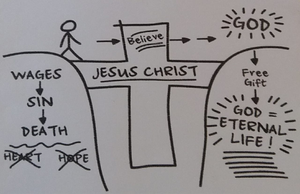 GOD
Believe
JESUS CHRIST
WAGES
SIN
DEATH
HEART HOPE
Free
Gift
GOD =
ETERNAL
LIFE!